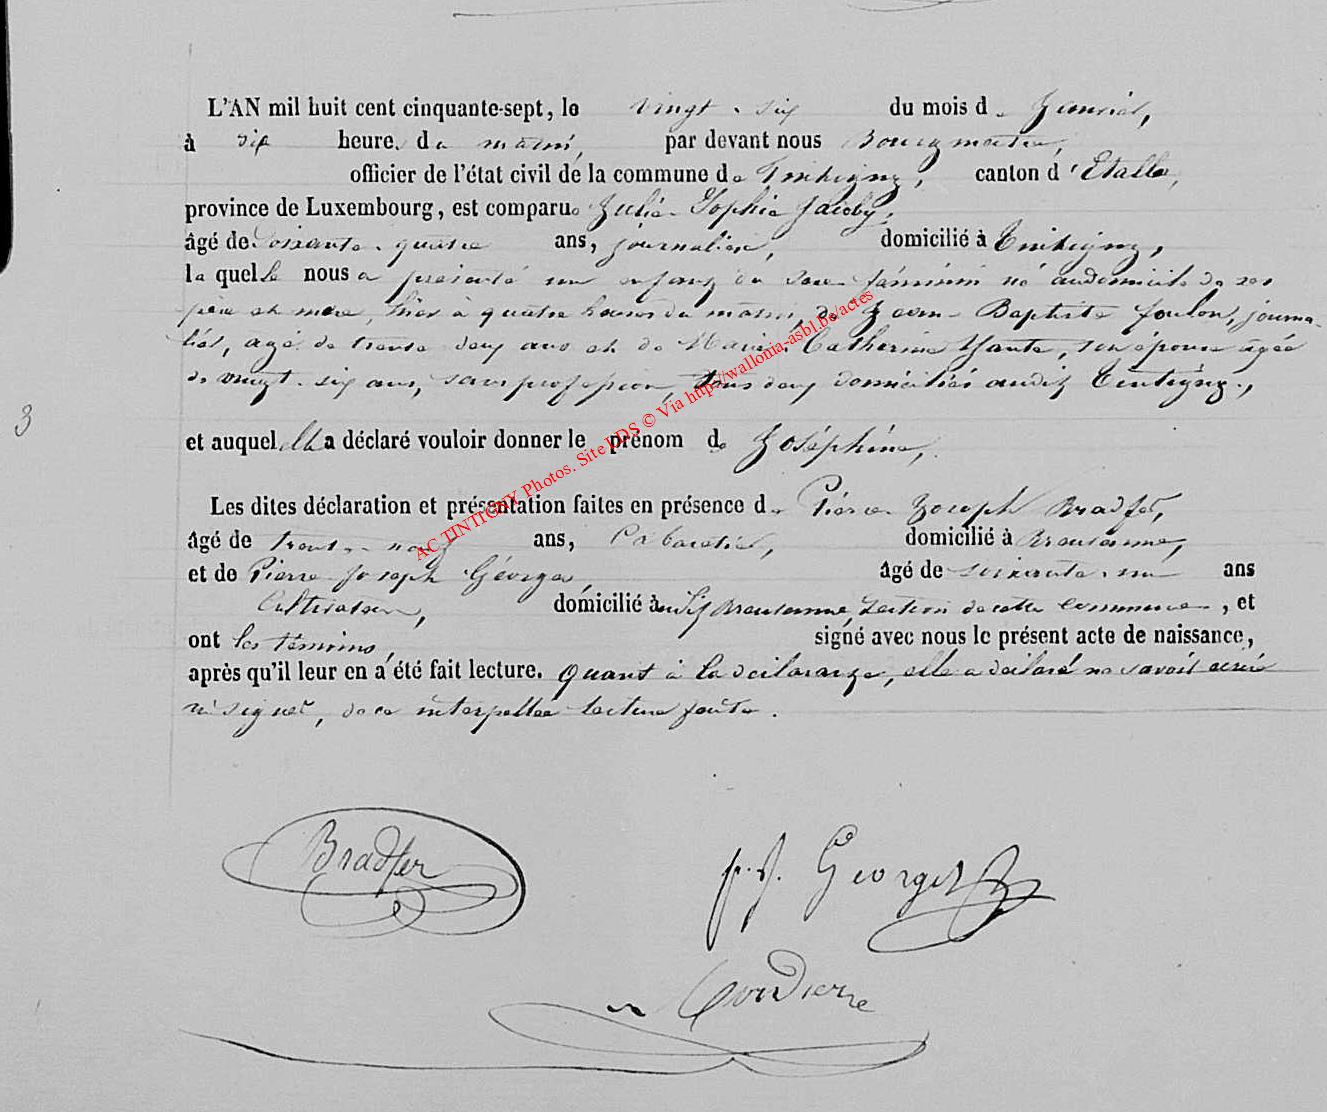 L'AN mil huit cent cinquante-sept, le vingt-six du mois de Janvier,
à dix heures du matin, par devant nous Bourgmestre,
officier de l'état civil de la commune de Tintigny, canton d'Etalle,
province de Luxembourg, est comparue Julie Sophie Jacoby,
âgé de Soixante-quatre ans, journalière, domicilié à Tintigny,
laquelle nous a présenté un enfant du sexe féminin né au domicile de ses
père et mère, hier à quatre heures du matin, de Jean Baptiste Foulon, journa-
lier, agé de trente deux ans et de Marie Catherine Yante, son épouse agée
de vingt-six ans, sans profession, tous deux domiciliés audit Tintigny.,
3
et auquel elle a déclaré vouloir donner le prénom de Joséphine,
Les dites déclaration et présentation faites en présence de Pierre Joseph Bradfer,
âgé de trente-neuf ans, Cabaretier, domicilié à Breuvanne,
et de Pierre Joseph Georges, âgé de soixante-un ans
Cultivateur, domicilié audit Breuvanne, section de cette commune, et
ont les témoins, signé avec nous le présent acte de naissance,
après qu'il leur en a été fait lecture. Quant à la déclarante, elle a déclaré ne savoir écrire
ni signer, de ce interpellée lecture faite.
Bradfer
p. J. Georges
Cordierre
AC TINTIGNY Photos. Site LDS © Via http://wallonia-asbl.be/actes